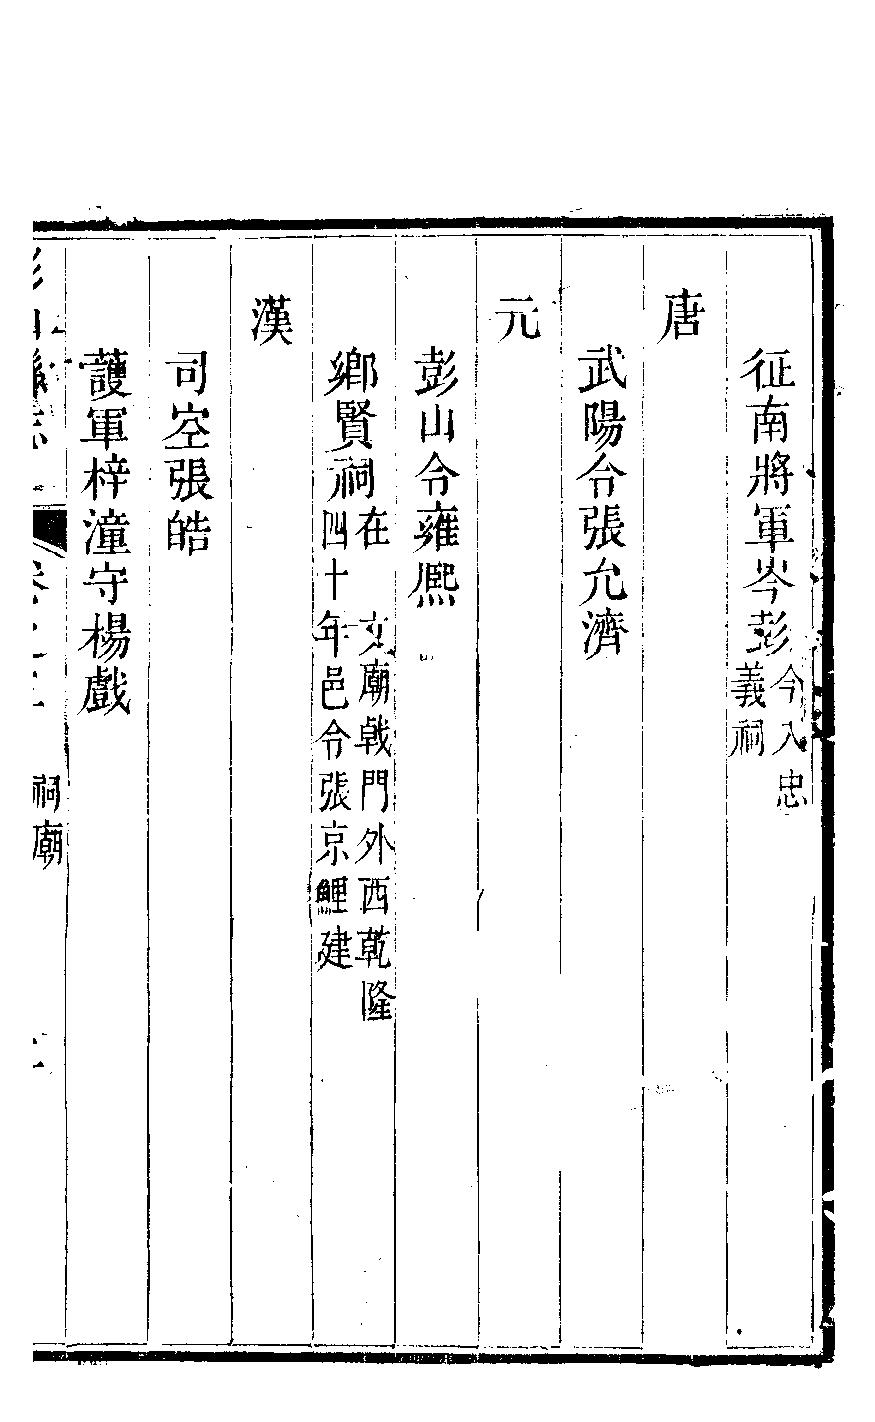 征南將軍岑彭今入忠義祠
唐
武陽令張允濟
元
彭山令雍熙
鄉賢祠在　文廟戟門外西乾隆四十年邑令張京鯉建
漢
司空張皓
護軍梓潼守楊戲
彭山縣志　卷之　祠廟